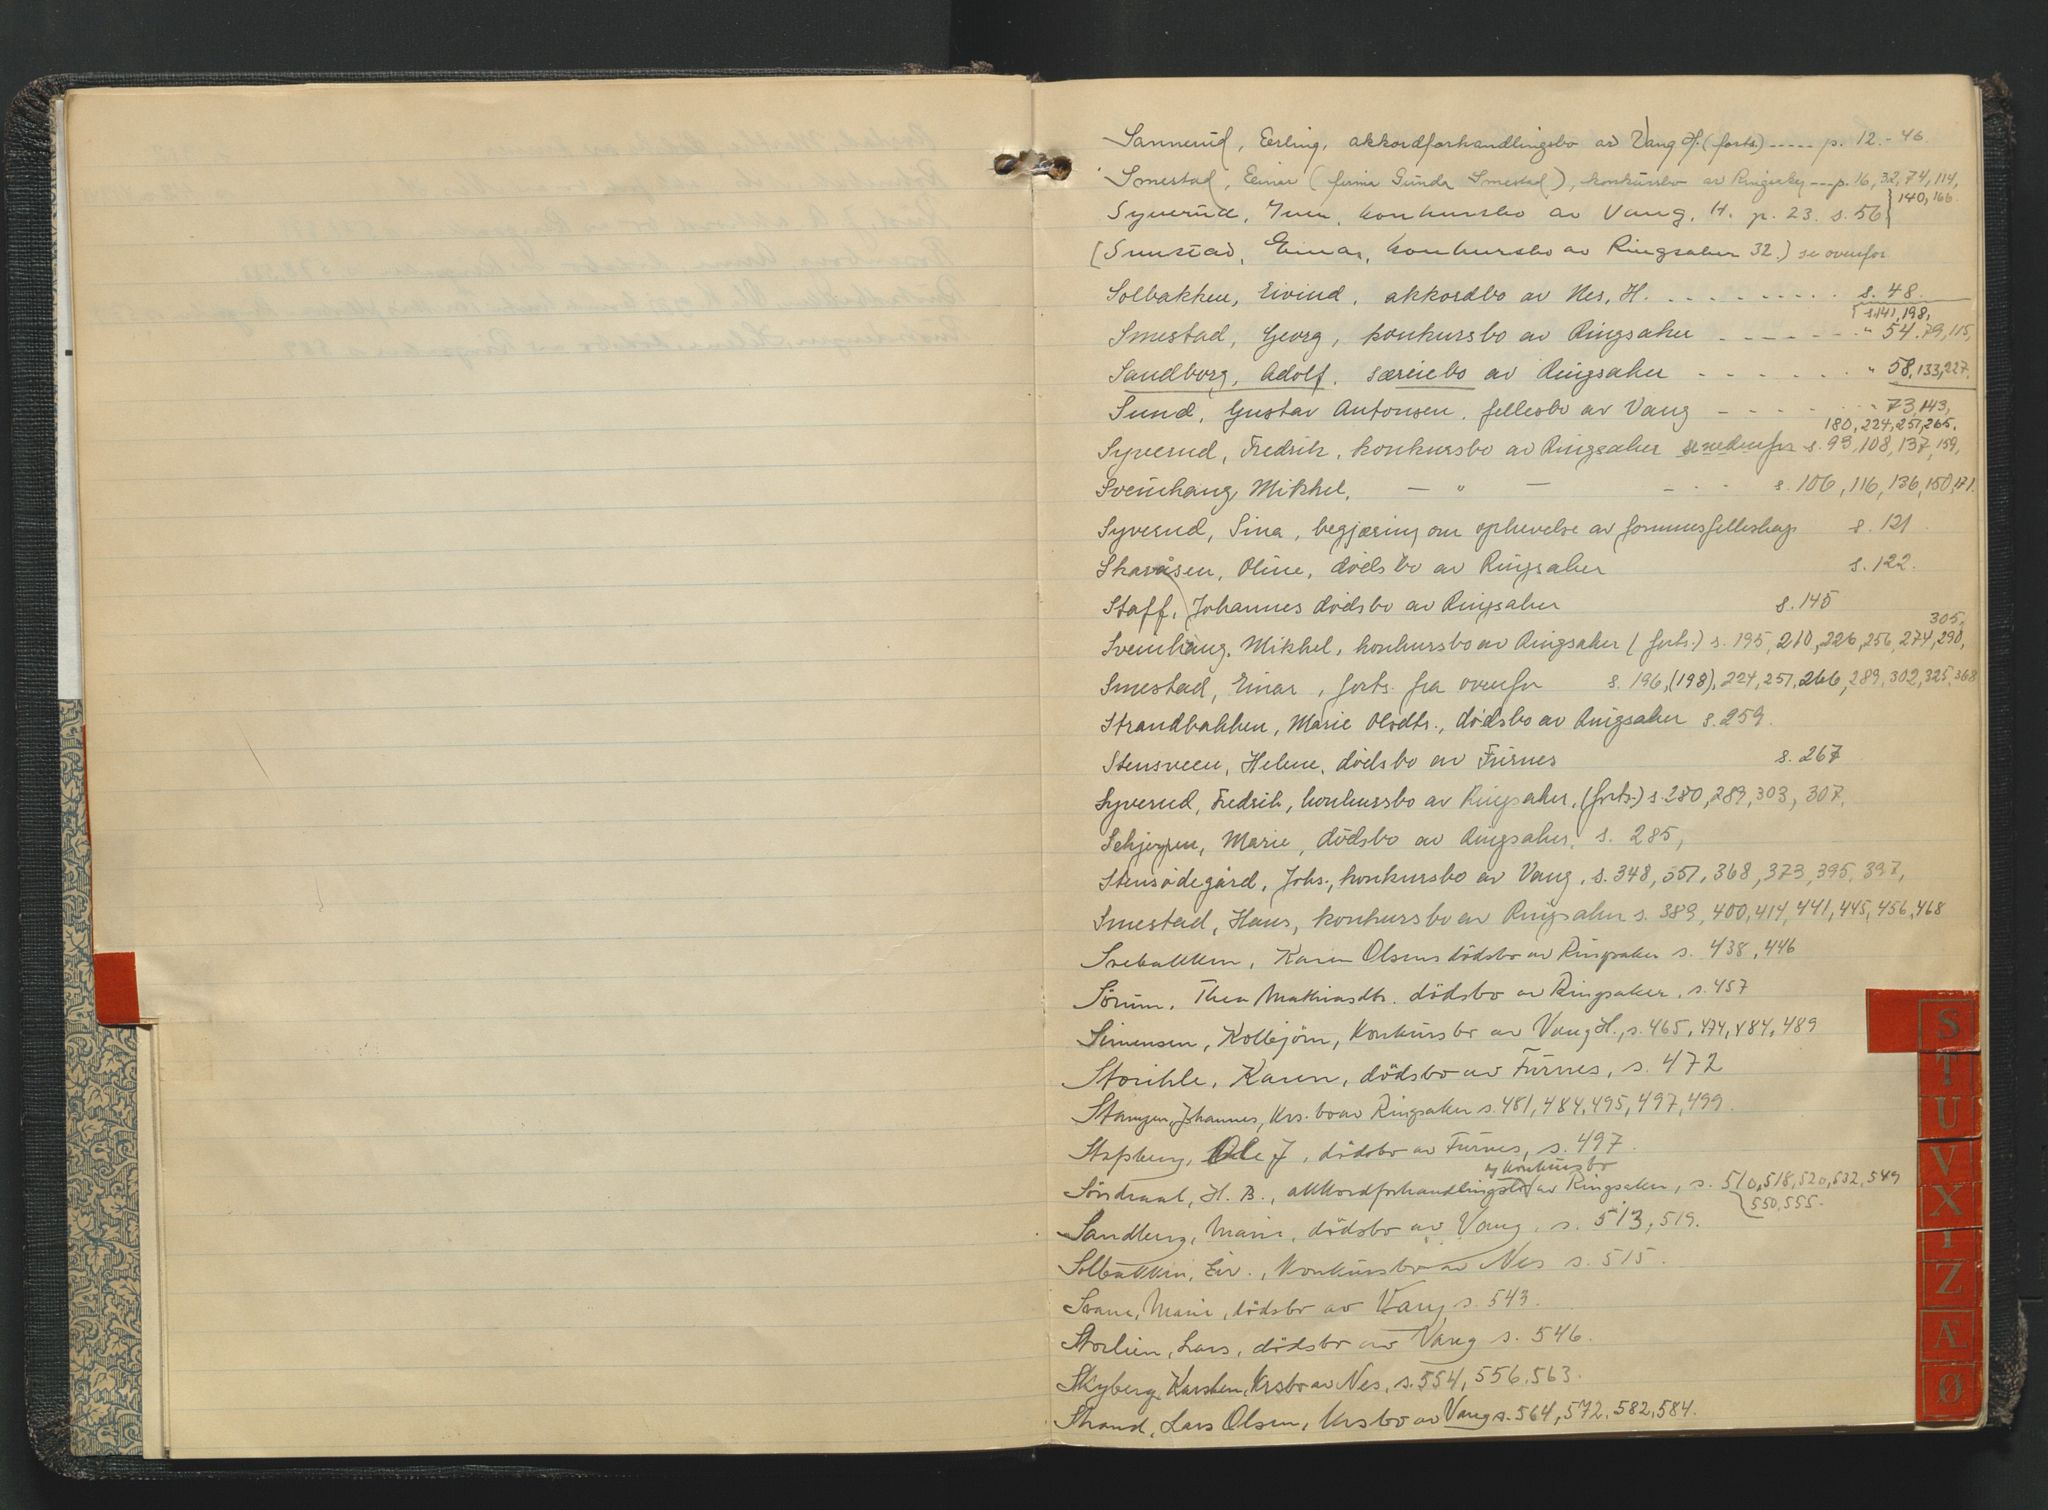 Sannerud, Erling, akkordforhandlingsbo av Vang H. (forts.) ----- p. 12.- 46.
Smestad, Einar (firma Gunda Smestad), konkursbo av Ringsaker --- p. 16, 32, 74, 114,
140, 166.
Syverud, Iver, konkursbo av Vang, H. p. 23. s. 56
[Smestad, Einar, konkursbo av Ringsaker 32.) se ovenfor
Solbakken, Eivind, akkordbo av Nes, H. . . . . . . . . . s. 48.
s. 141, 198,
Smestad, Georg, konkursbo av Ringsaker - - - - - - - " 54. 79, 115,
Sandborg, Adolf. særeiebo av Ringsaker - - - - - - " 58, 133, 227.
Sund, Gustav Antonsen, fellesbo av Vang - - - - - " 73, 143,
180, 224, 251, 265.
Syverud, Fredrik, konkursbo av Ringsaker se nedenfor s. 93, 108, 137, 159,
Sveinhaug, Mikkel, — " — - - - s. 106, 116, 136, 150, 171.
Syverud, Sina, begjæring om ophevelse av formuesfelleskap s. 121.
Skaråsen, Oline, dødsbo av Ringsaker s. 122.
Staff, Johannes dødsbo av Ringsaker s. 145
305,
Sveinhaug, Mikkel, konkursbo av Ringsaker (forts.) s. 195, 210, 226, 256, 274, 290,
Smestad, Einar, forts. fra ovenfor s. 196, (198), 224, 251, 266, 289, 302, 325, 368
Strandbakken, Marie Olsdtr., dødsbo av Ringsaker s. 259.
Stensveen, Helene, dødsbo av Furnes s. 267
Syverud, Fredrik, konkursbo av Ringsaker, (forts.) s. 280, 289, 303, 307,
Marie, dødsbo av Ringsaker, s. 285,
Stensødegård, Johs., konkursbo av Vang, s. 348, 351, 368, 373, 395, 397,
Smestad, Hans, konkursbo av Ringsaker s. 389, 400, 414, 441, 445, 456, 468
Svebakken, Karen Olsens dødsbo av Ringsaker s. 438, 446
Sörum, Thea Mathiasdtr. dödsbo av Ringsaker, s. 457
Simensen, Kolbjörn, konkursbo av Vang H., s. 465, 474, 484, 489
Storihle, Karen, dödsbo av Furnes, s. 472
Stangen, Johannes, krs. bo av Ringsaker s. 481, 484, 495, 497, 499.
Ole J, dödsbo av Furnes, s. 497.
og konkursbo
H. B., akkordforhandlingsbo av Ringsaker, s. 510, 518, 520, 532, 549
550, 555.
Sandberg, Marie, dödsbo av Vang, s. 513, 519.
Solbakken, Eiv., konkursbo av Nes s. 515.
Svane, Marie, dödsbo av Vang s. 543.
Storlien, Lars, dödsbo av Vang s. 546.
Skyberg, Karsten, krsbo av Nes, s. 554, 556, 563.
Strand, Lars Olsen, krsbo av Vang s. 564, 572, 582, 584.
S
T
U
V
X
Y
Z
Æ
Ø